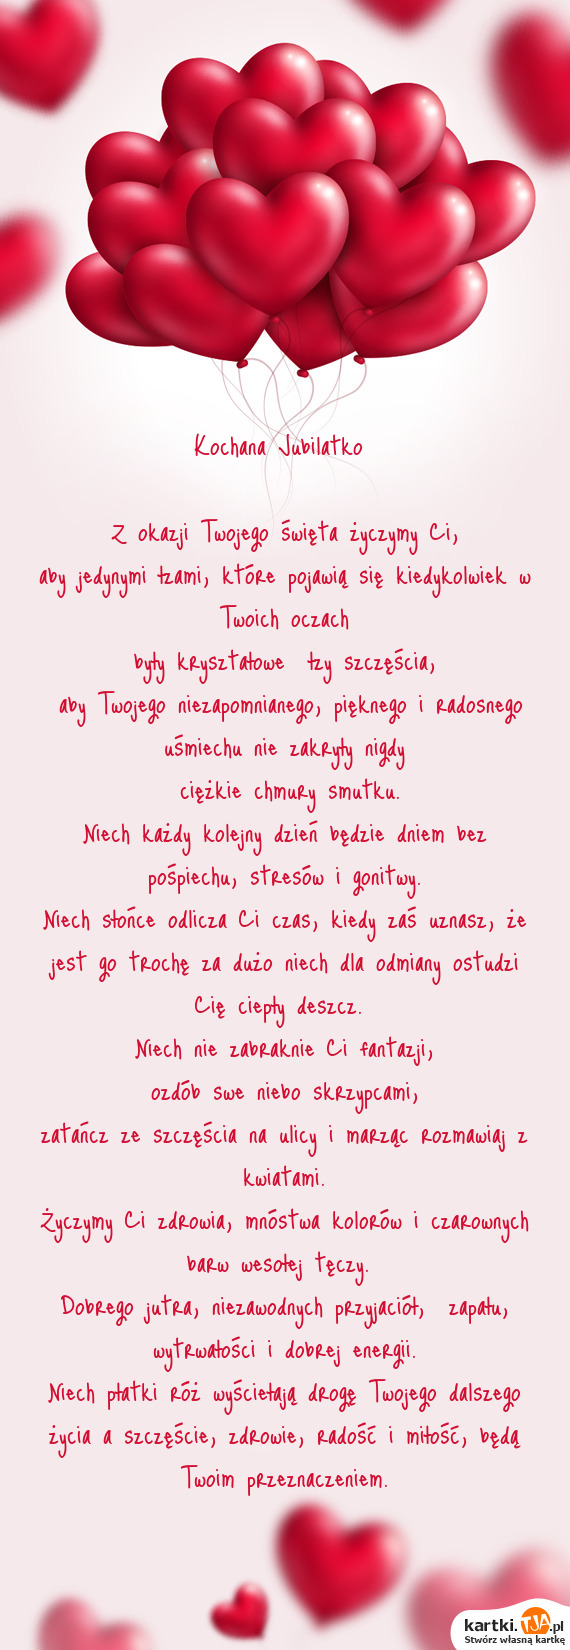 Kochana Jubilatko
Z okazji Twojego święta życzymy Ci,
aby jedynymi łzami, które pojawią się kiedykolwiek w
Twoich oczach
były kryształowe łzy szczęścia,
aby Twojego niezapomnianego, pięknego i radosnego
uśmiechu nie zakryły nigdy
ciężkie chmury smutku.
Niech każdy kolejny dzień będzie dniem bez
pośpiechu, stresów i gonitwy.
Niech słońce odlicza Ci czas, kiedy zaś uznasz, że
jest go trochę za dużo niech dla odmiany ostudzi
Cię ciepły deszcz.
Niech nie zabraknie Ci fantazji,
ozdób swe niebo skrzypcami,
zatańcz ze szczęścia na ulicy i marząc rozmawiaj z
kwiatami.
Życzymy Ci zdrowia, mnóstwa kolorów i czarownych
barw wesołej tęczy.
Dobrego jutra, niezawodnych przyjaciół, zapału,
wytrwałości i dobrej energii.
Niech płatki róż wyściełają drogę Twojego dalszego
życia a szczęście, zdrowie, radość i miłość, będą
Twoim przeznaczeniem.
kartki.TJA.pl
Stwórz własną kartkę